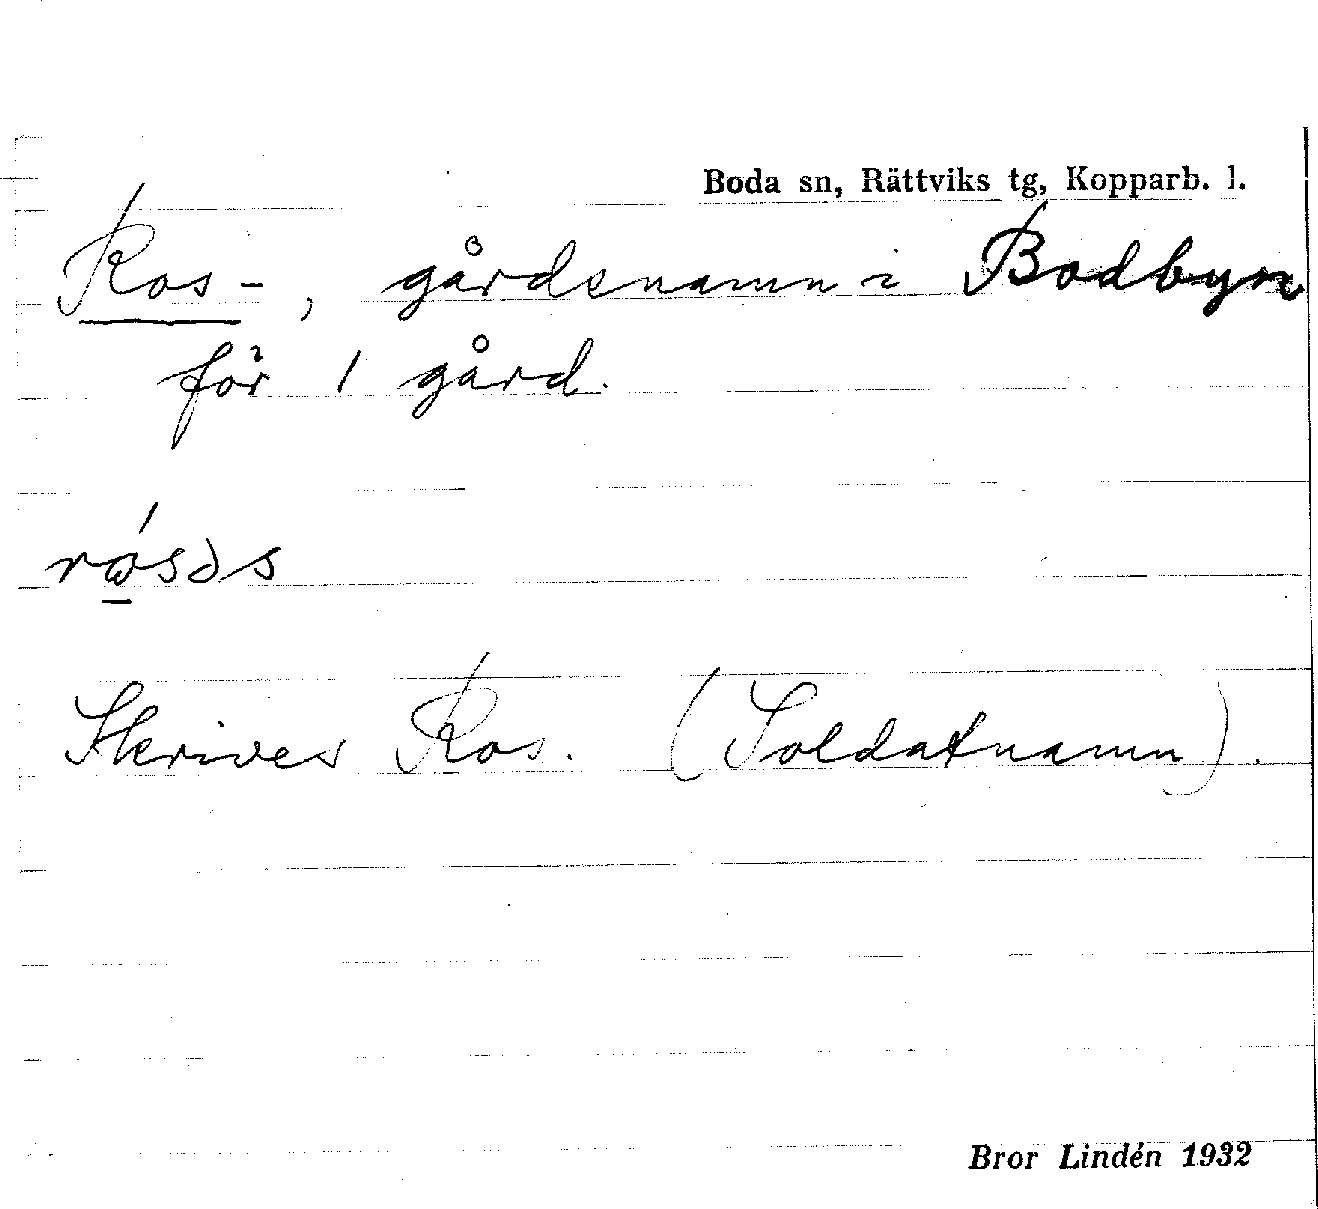 Boda sn, Rättviks tg, Kopparb. l.
Ros-, gårdsnamn i Bodbyn
för 1 gård.
Skrives Ros. (Soldatnamn).
Bror Lindén 1932